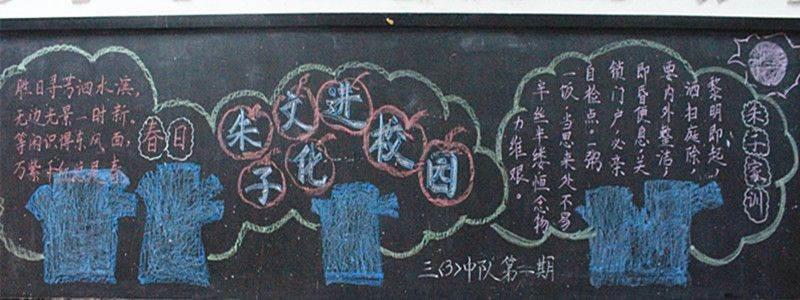 胜日寻芳泗水滨，
无边光景一时新。
等闲识得东风面，
万
千
春
春日
朱子文化进校园
朱子家训
黎明即起，
洒扫庭除，
要内外整洁，
即昏便息，关
锁门户，必亲
自检点。一粥
一饭，当思来处不易
半丝半缕，恒念物
力维艰。
三(3)中队第一期